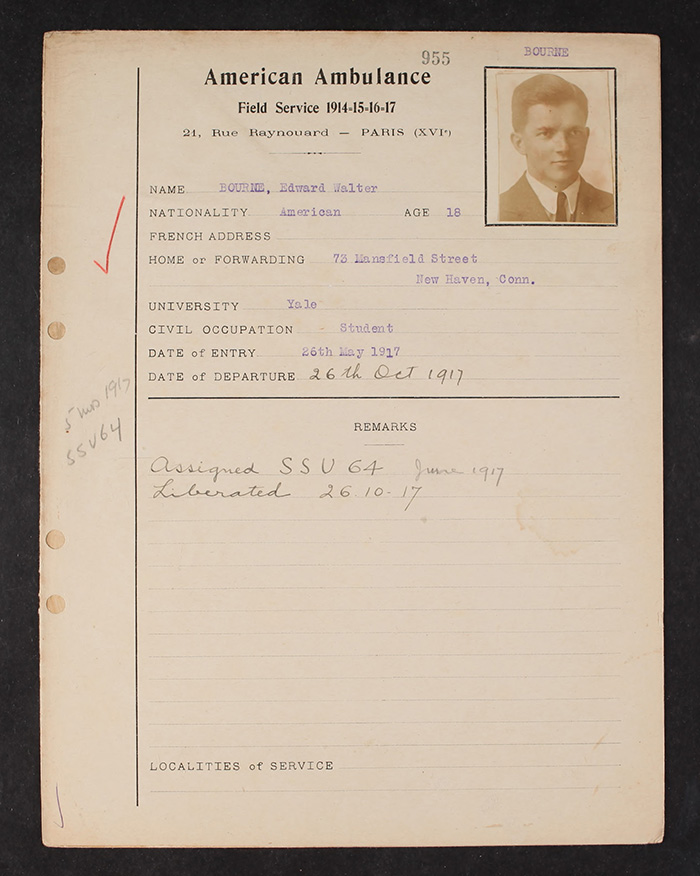 955
BOURNE
American Ambulance
Field Service 1914-15-16-17
21, Rue Raynouard — PARIS (XVIe)
NAME BOURNE, Edward Walter
NATIONALITY American AGE 18
FRENCH ADDRESS
HOME or FORWARDING 73 Mansfield Street
New Haven, Conn.
UNIVERSITY Yale
CIVIL OCCUPATION - Student
DATE of ENTRY 26th May 1917
DATE of DEPARTURE 26th Oct 1917
5 mos 1917
SSU 64
REMARKS
Assigned SSU 64 June 1917
Liberated 26.10-17
LOCALITIES of SERVICE